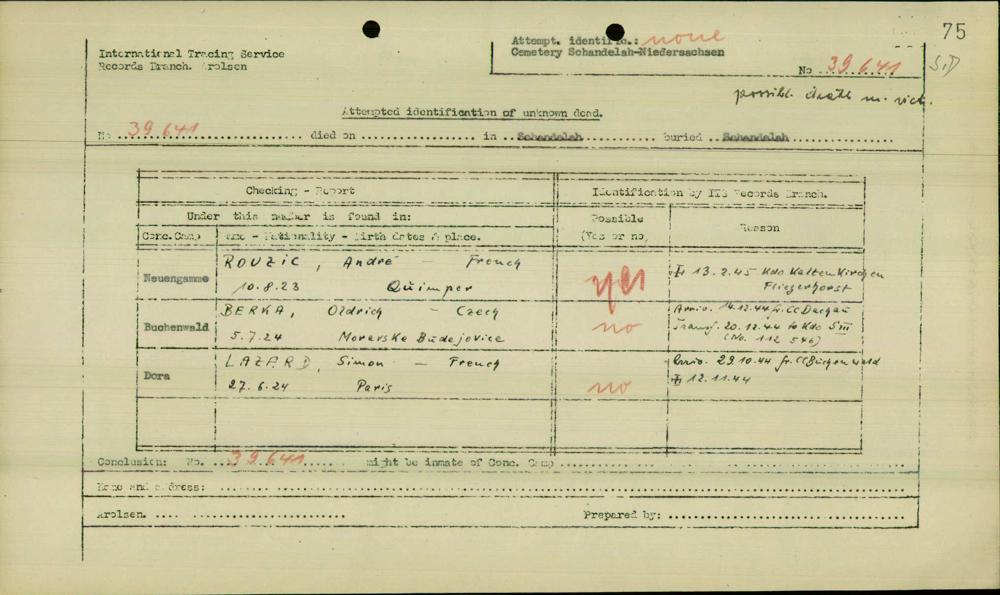 75
International Tracing Service
Records Branch. Arolsen
Attempt. identific.: none
Cemetery Schandelah-Niedersachsen
No 39 641
possibl. death m. vich.
Attempted identification of unknown dead.
No 39 641 died on in Schandelah buried Schandelah
Checking - Report
Identification by ITS Records Branch.
Under this number is found in:
Possible
(Yes or no,
Reason
Conc.Camp
- Nationality - Birth dates & place.
Neuengamme
ROUZIC, André - French
10.8.23 Quimper
yes
13.2.45 Kdo Kaltenkirchen
Fliegerhorst
Buchenwald
BERKA, Oldrich - Czech
5.7.24 Moravske Budejovice
no
Arriv. 14.12.44 fr. CC Dachau
Transf. 20.12.44 to Kdo S III
(No. 112 546)
Dora
LAZARD, Simon French
27.6.24 Paris
no
Arriv. 29.10.44 fr. CC Buchenwald
12.11.44
Conclusion: No. 39 641 might be inmate of Conc. Camp
Name and address:
Arolsen.
Prepared by: